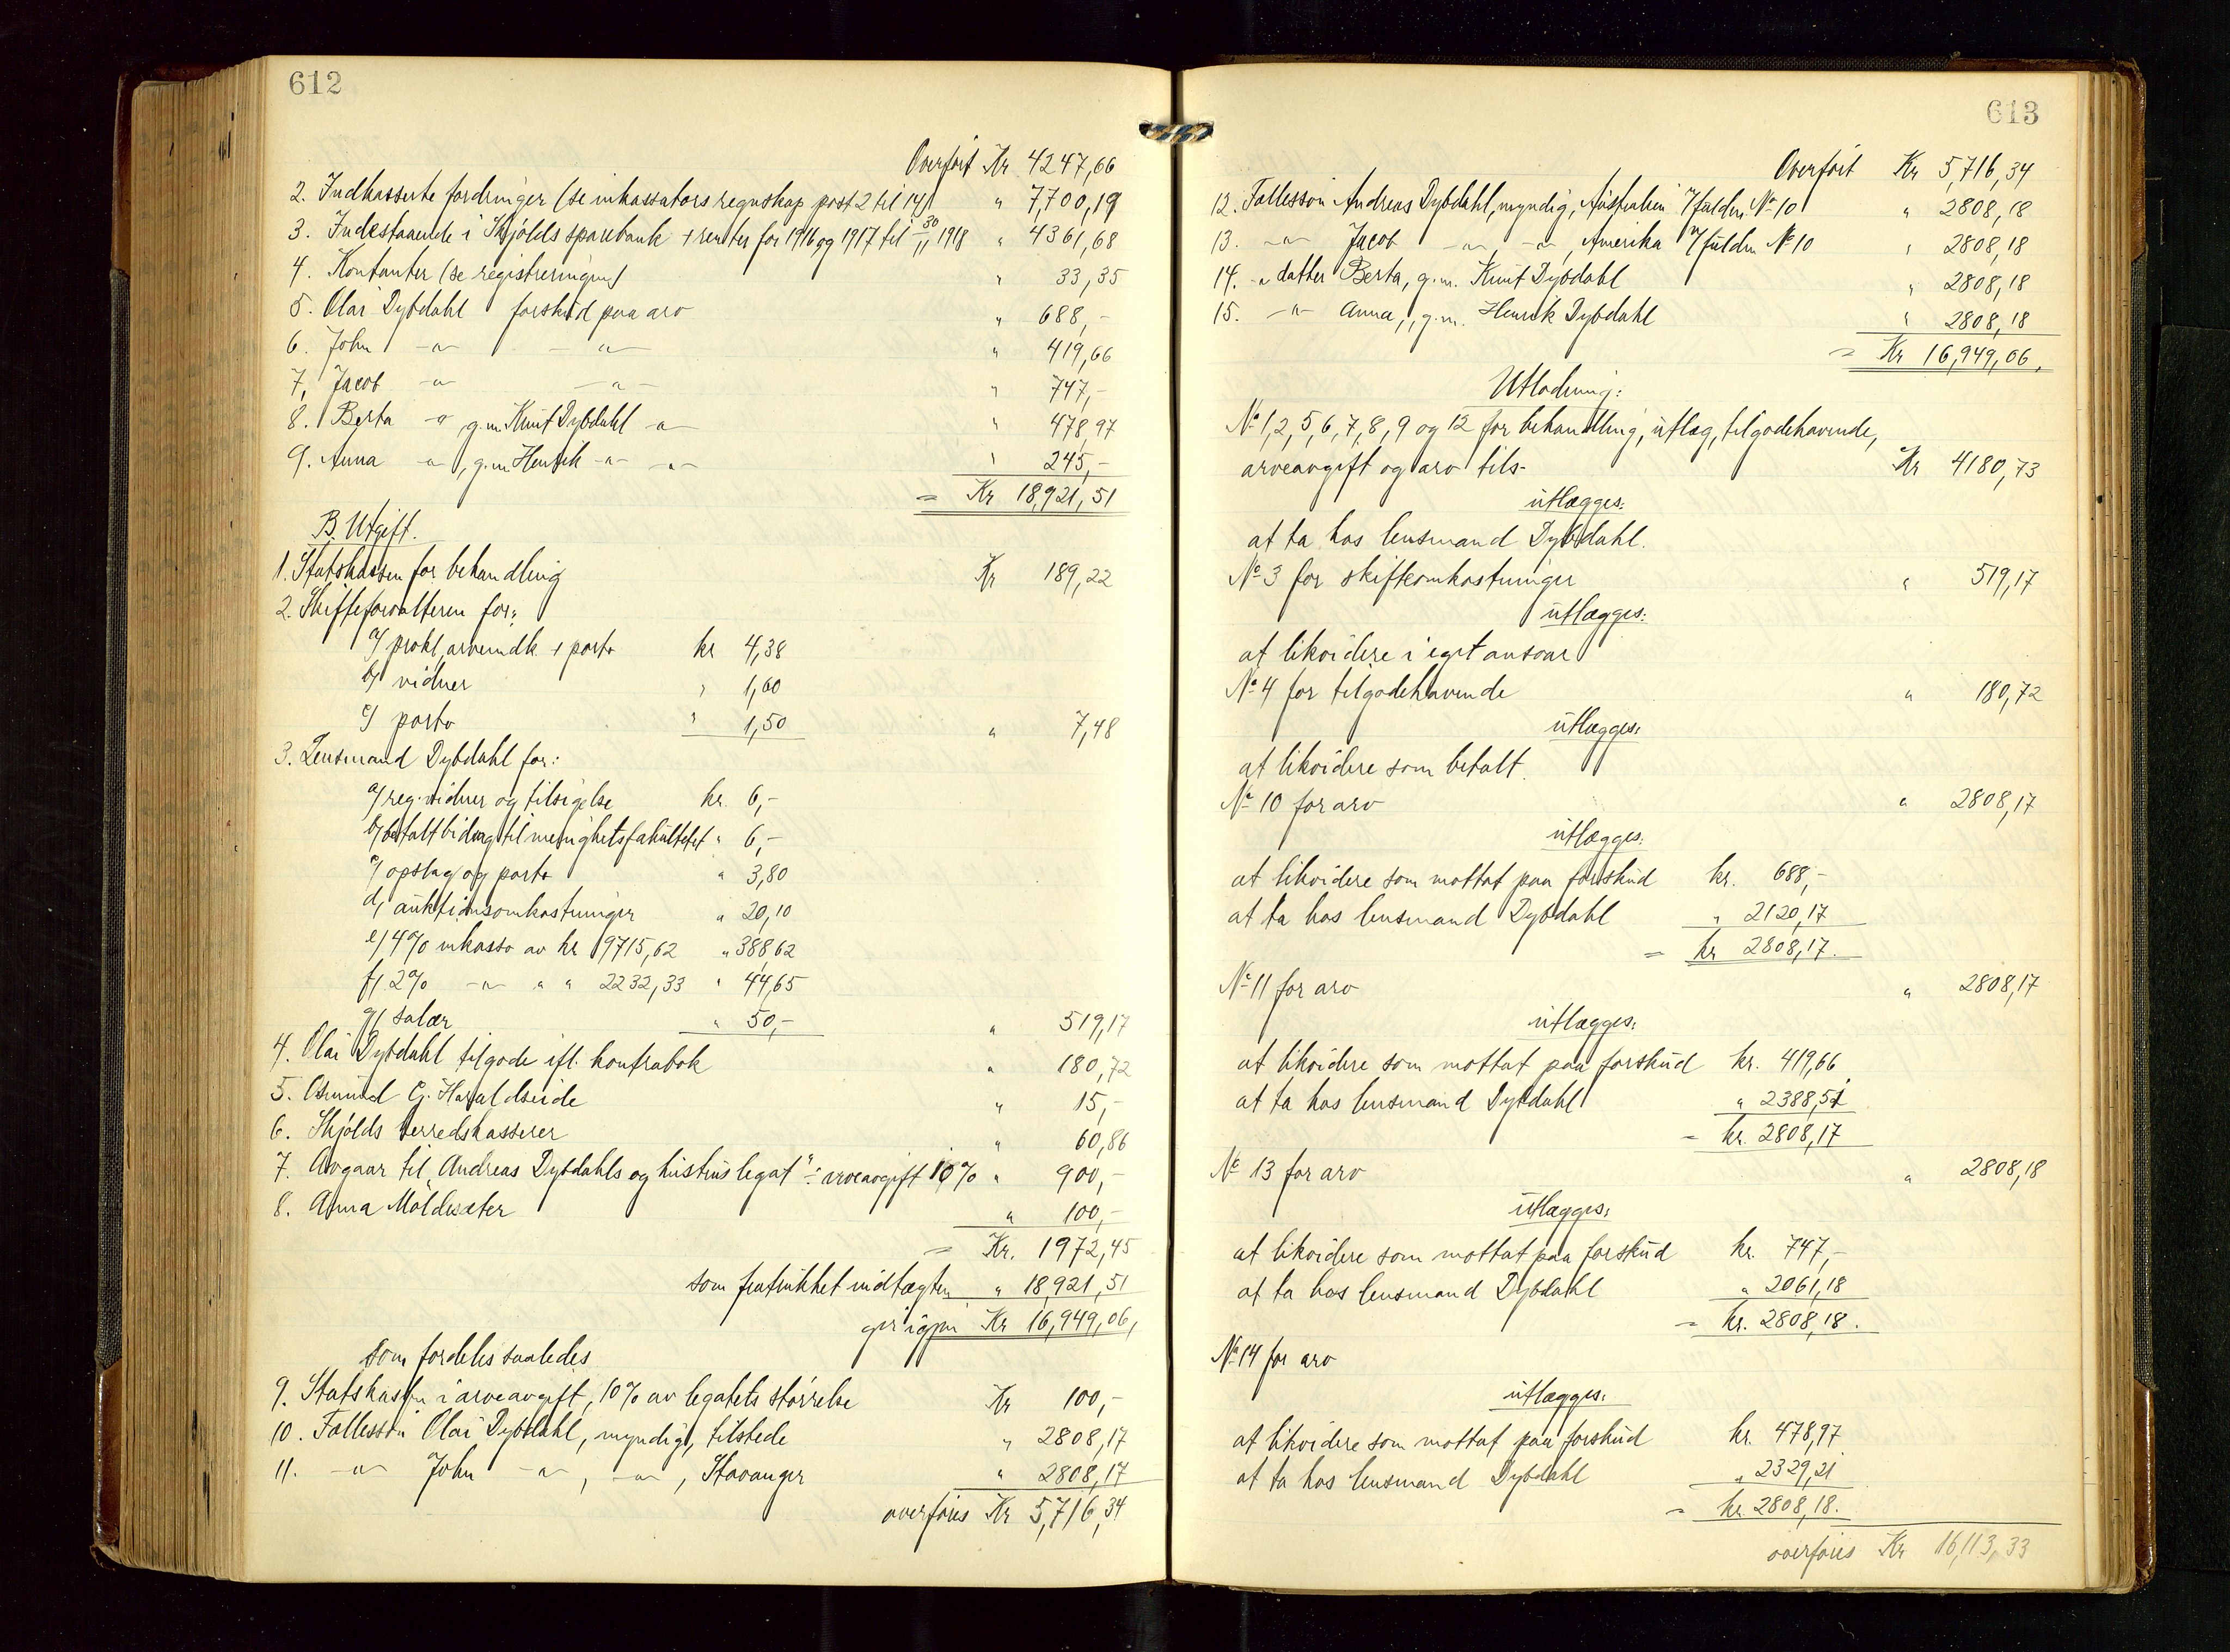 612
Overført Kr 4247,66
2. Indkasserte fordringer (se inkassators regnskap post 2 til 14) " 7,700,19
3. Indestaaende i Skjolds sparebank + renter for 1916 og 1917 til 30/11 1918 " 4361,68
4. Kontanter (se registreringen) " 33,35
5. Olai Dybdahl forskud paa arv " 688,-
6. John -"- -"- " 419,66
7. Jacob -"- -"- " 747,-
8. Berta -"-, g.m. Knut Dybdahl -"- " 478,97
9. Anna -"-, g.m. Henrik -"- -"- " 245,-
= Kr 18,921,51
B. Utgift.
1. Statskassen for behandling Kr 189,22
2. Skifteforvalteren for:
a/ prokl., arveindk. + porto kr 4,38
b/ vidner " 1,60
c/ porto " 1,50 " 7,48
3. Lensmand Dybdahl for:
a/ reg. vidner og tilsigelse kr. 6,-
b/ betalt bidrag til menighetsfakultetet " 6,-
c/ opslag og porto " 3,80
d/ auktionsomkostninger " 20,10
e/ 4% inkasso av kr 9715,62 " 388,62
f/ 2% -"- " " 2232,33 " 44,65
g/ salær " 50,- " 519,17
4. Olai Dybdahl tilgode ifl. kontrabok " 180,72
5. Osmund G. Haraldseide " 15,-
6. Skjolds herredskasserer " 60,86
7. Avgaar til "Andreas Dybdahls og hustrus legat" ÷ arveavgift 10% " 900,-
8. Anna Moldesæter " 100,-
= Kr. 1972,45
som fratrukket indtægten " 18,921,51
gir igjen Kr 16,949,06,
som fordeles saaledes
9. Statskassen i arveavgift, 10% av legatets størrelse Kr 100,-
10. Fællessøn Olai Dybdahl, myndig, tilstede " 2808,17
11. -"- John -"-, -"-, Stavanger " 2808,17
overføres Kr 5,716,34
613
Overført Kr 5,716,34
12. Fællessøn Andreas Dybdahl, myndig, Australien v/ fuldm. No 10 " 2808,18
13. -"- Jacob -"-, -"-, Amerika v/ fuldm No 10 " 2808,18
14. " datter Berta, g.m. Knut Dybdahl " 2808,18
15. -"- Anna, g.m. Henrik Dybdahl " 2808,18
= Kr 16,949,06,
Utlodning:
No 1, 2, 5, 6, 7, 8, 9 og 12 for behandling, utlæg, tilgodehavende,
arveavgift og arv tils. Kr 4180,73
utlægges:
at ta hos lensmand Dybdahl.
No 3 for skifteomkostninger " 519,17
utlægges:
at likvidere i eget ansvar
No 4 for tilgodehavende " 180,72
utlægges:
at likvidere som betalt.
No 10 for arv " 2808,17
utlægges:
at likvidere som mottat paa forskud kr. 688,-
at ta hos lensmand Dybdahl " 2120,17
= kr 2808,17.
No 11 for arv " 2808,17
utlægges:
at likvidere som mottat paa forskud kr. 419,66
at ta hos lensmand Dybdahl " 2388,51
= kr. 2808,17
No 13 for arv " 2808,18
utlægges:
at likvidere som mottat paa forskud kr. 747,-
at ta hos lensmand Dybdahl " 2061,18
= kr. 2808,18.
No 14 for arv
utlægges:
at likvidere som mottat paa forskud kr. 478,97
at ta hos lensmand Dybdahl " 2329,21
= kr 2808,18.
overføres Kr 16,113,33